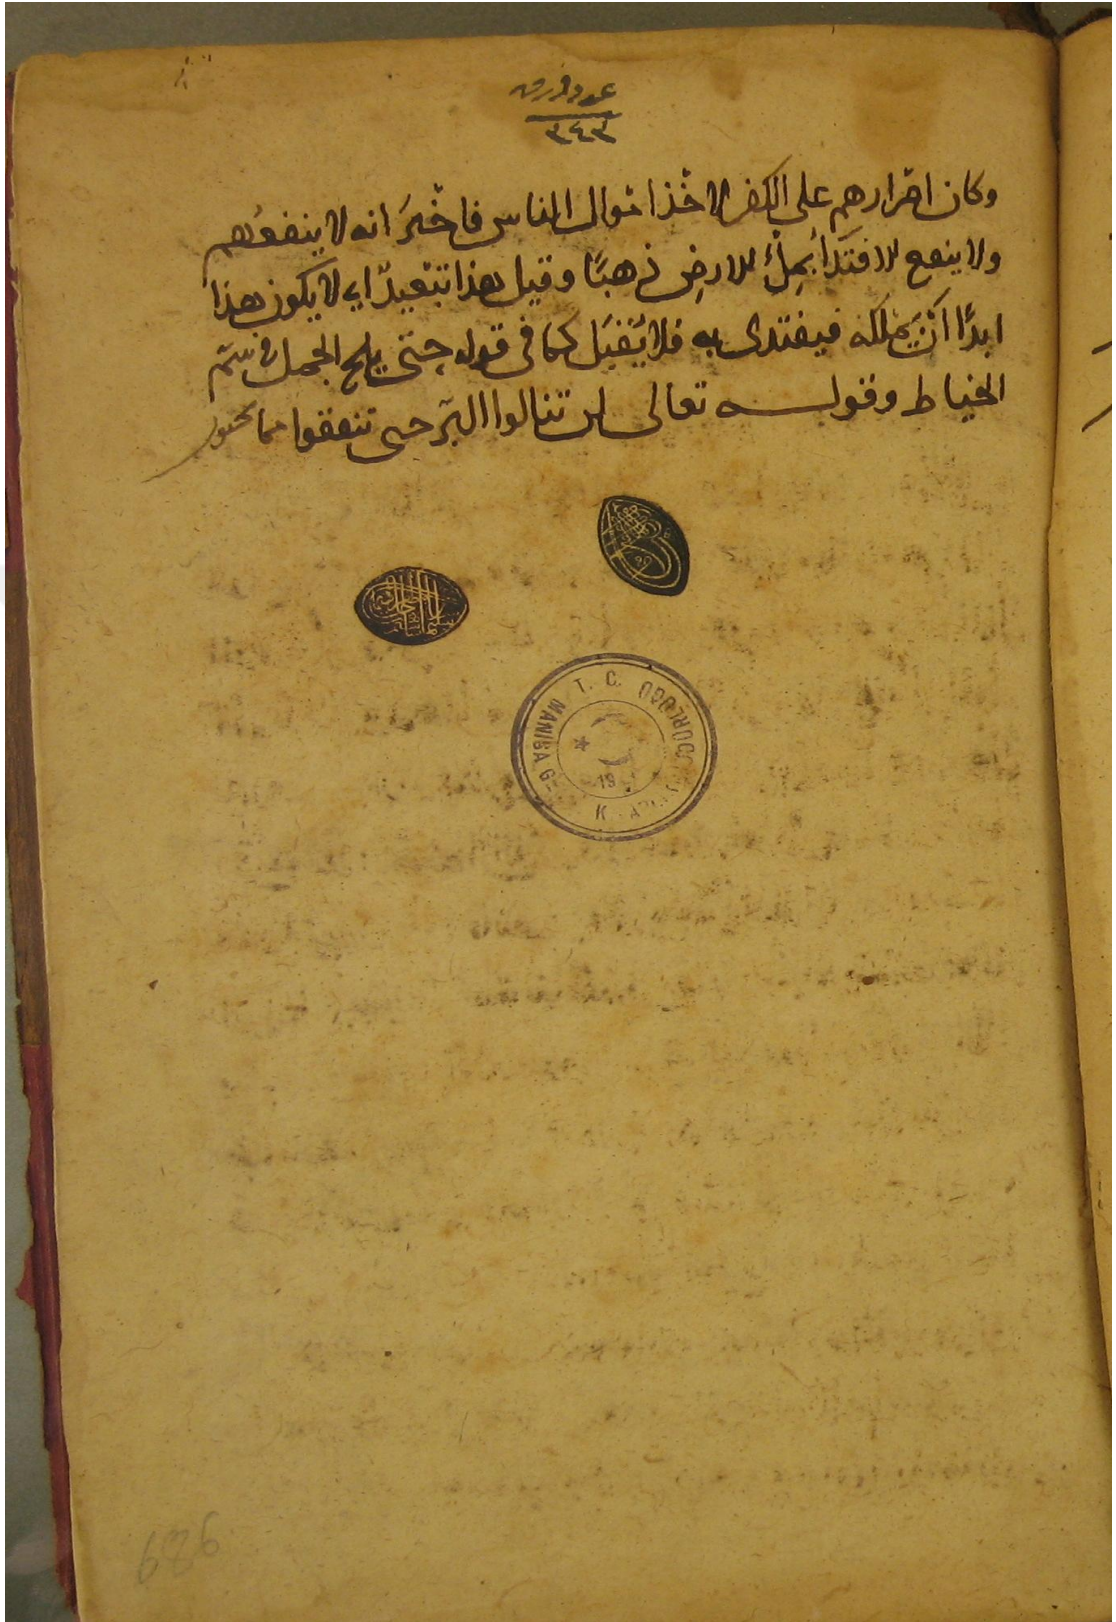 عدد اوراق
٣٤٣
وكان اصرارهم على الكفر لاخذ اموال الناس فاخبَر انه لا ينفعُهم
ولا ينفع الافتدَاُ بمِلْءِ الارضِ ذهبًا وقيل هذا تبْعيدٌ اي لا يكون هذا
ابدًا اَنْ يَملكه فيفتدى به فلا يُقبَل كما فى قوله حتى يلج الجمل فى سَمّ
الخياط وقوله تعالى لن تنالوا البرّ حتى تنفقوا مما تحبون
T. C.
MANİSA
K
19
989